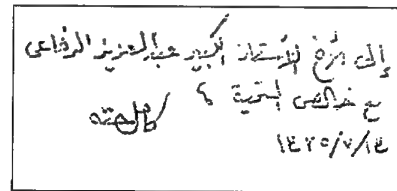 إلى الأخ الأستاذ الكبير عبدالعزيز الرفاعى
مع خالص التحية
١٤٢٥/٧/١٤